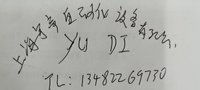 上海宇帝自动化设备有限公司
YU DI
TL: 13482269730